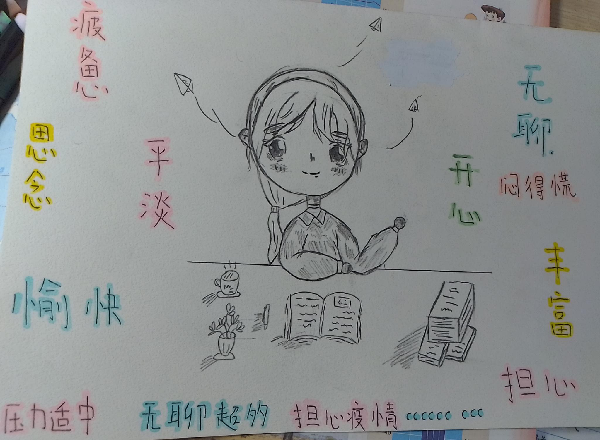 疲惫
无聊
思念
平淡
开心
闷得慌
丰富
愉快
担心
压力适中
无聊超多
担心疫情…… …